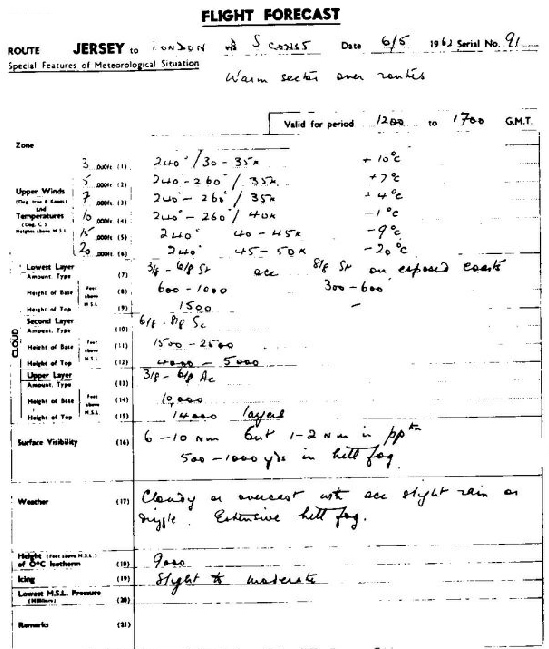 FLIGHT FORECAST
ROUTE JERSEY to LONDON via S COAST Date 6/5 1962 Serial No. 91
Special Features of Meteorological Situation
Warm sector over routes
Valid for period 1200 to 1700 G.M.T.
Zone
3 ,000ft (1) 240° / 30 - 35K +10°C
5 ,000ft (2) 240 - 260° / 35K +7°C
Upper Winds 7 ,000ft (3) 240° - 260° / 35K +4°C
and
Temperatures 10 ,000ft (4) 240° - 260° / 40K -1°C
(Deg. C.)
Heights above M.S.L. 15 ,000ft (5) 240° 40 - 45K -9°C
20 ,000ft (6) 240° 45 - 50K -20°C
CLOUD
Lowest Layer
Amount, Type (7) 3/8 - 6/8 St occ 8/8 St on exposed coasts
Height of Base Feet above M.S.L. (8) 600 - 1000 300 - 600
Height of Top (9) 1500 -
Second Layer
Amount, Type (10) 6/8 - 8/8 Sc
Height of Base Feet above M.S.L. (11) 1500 - 2500
Height of Top (12) 4000 - 5000
Upper Layer
Amount, Type (13) 3/8 - 6/8 Ac
Height of Base Feet above M.S.L. (14) 10,000
Height of Top (15) 14000 layers
Surface Visibility (16) 6 - 10 nm but 1 - 2 nm in pptn
500 - 1000 yds in hill fog.
Weather (17) Cloudy or overcast with occ slight rain or
drizzle. Extensive hill fog.
Height (Feet above M.S.L.)
of 0°C Isotherm (18) 9000
Icing (19) Slight to moderate
Lowest M.S.L. Pressure
(Millibars) (20)
Remarks (21)